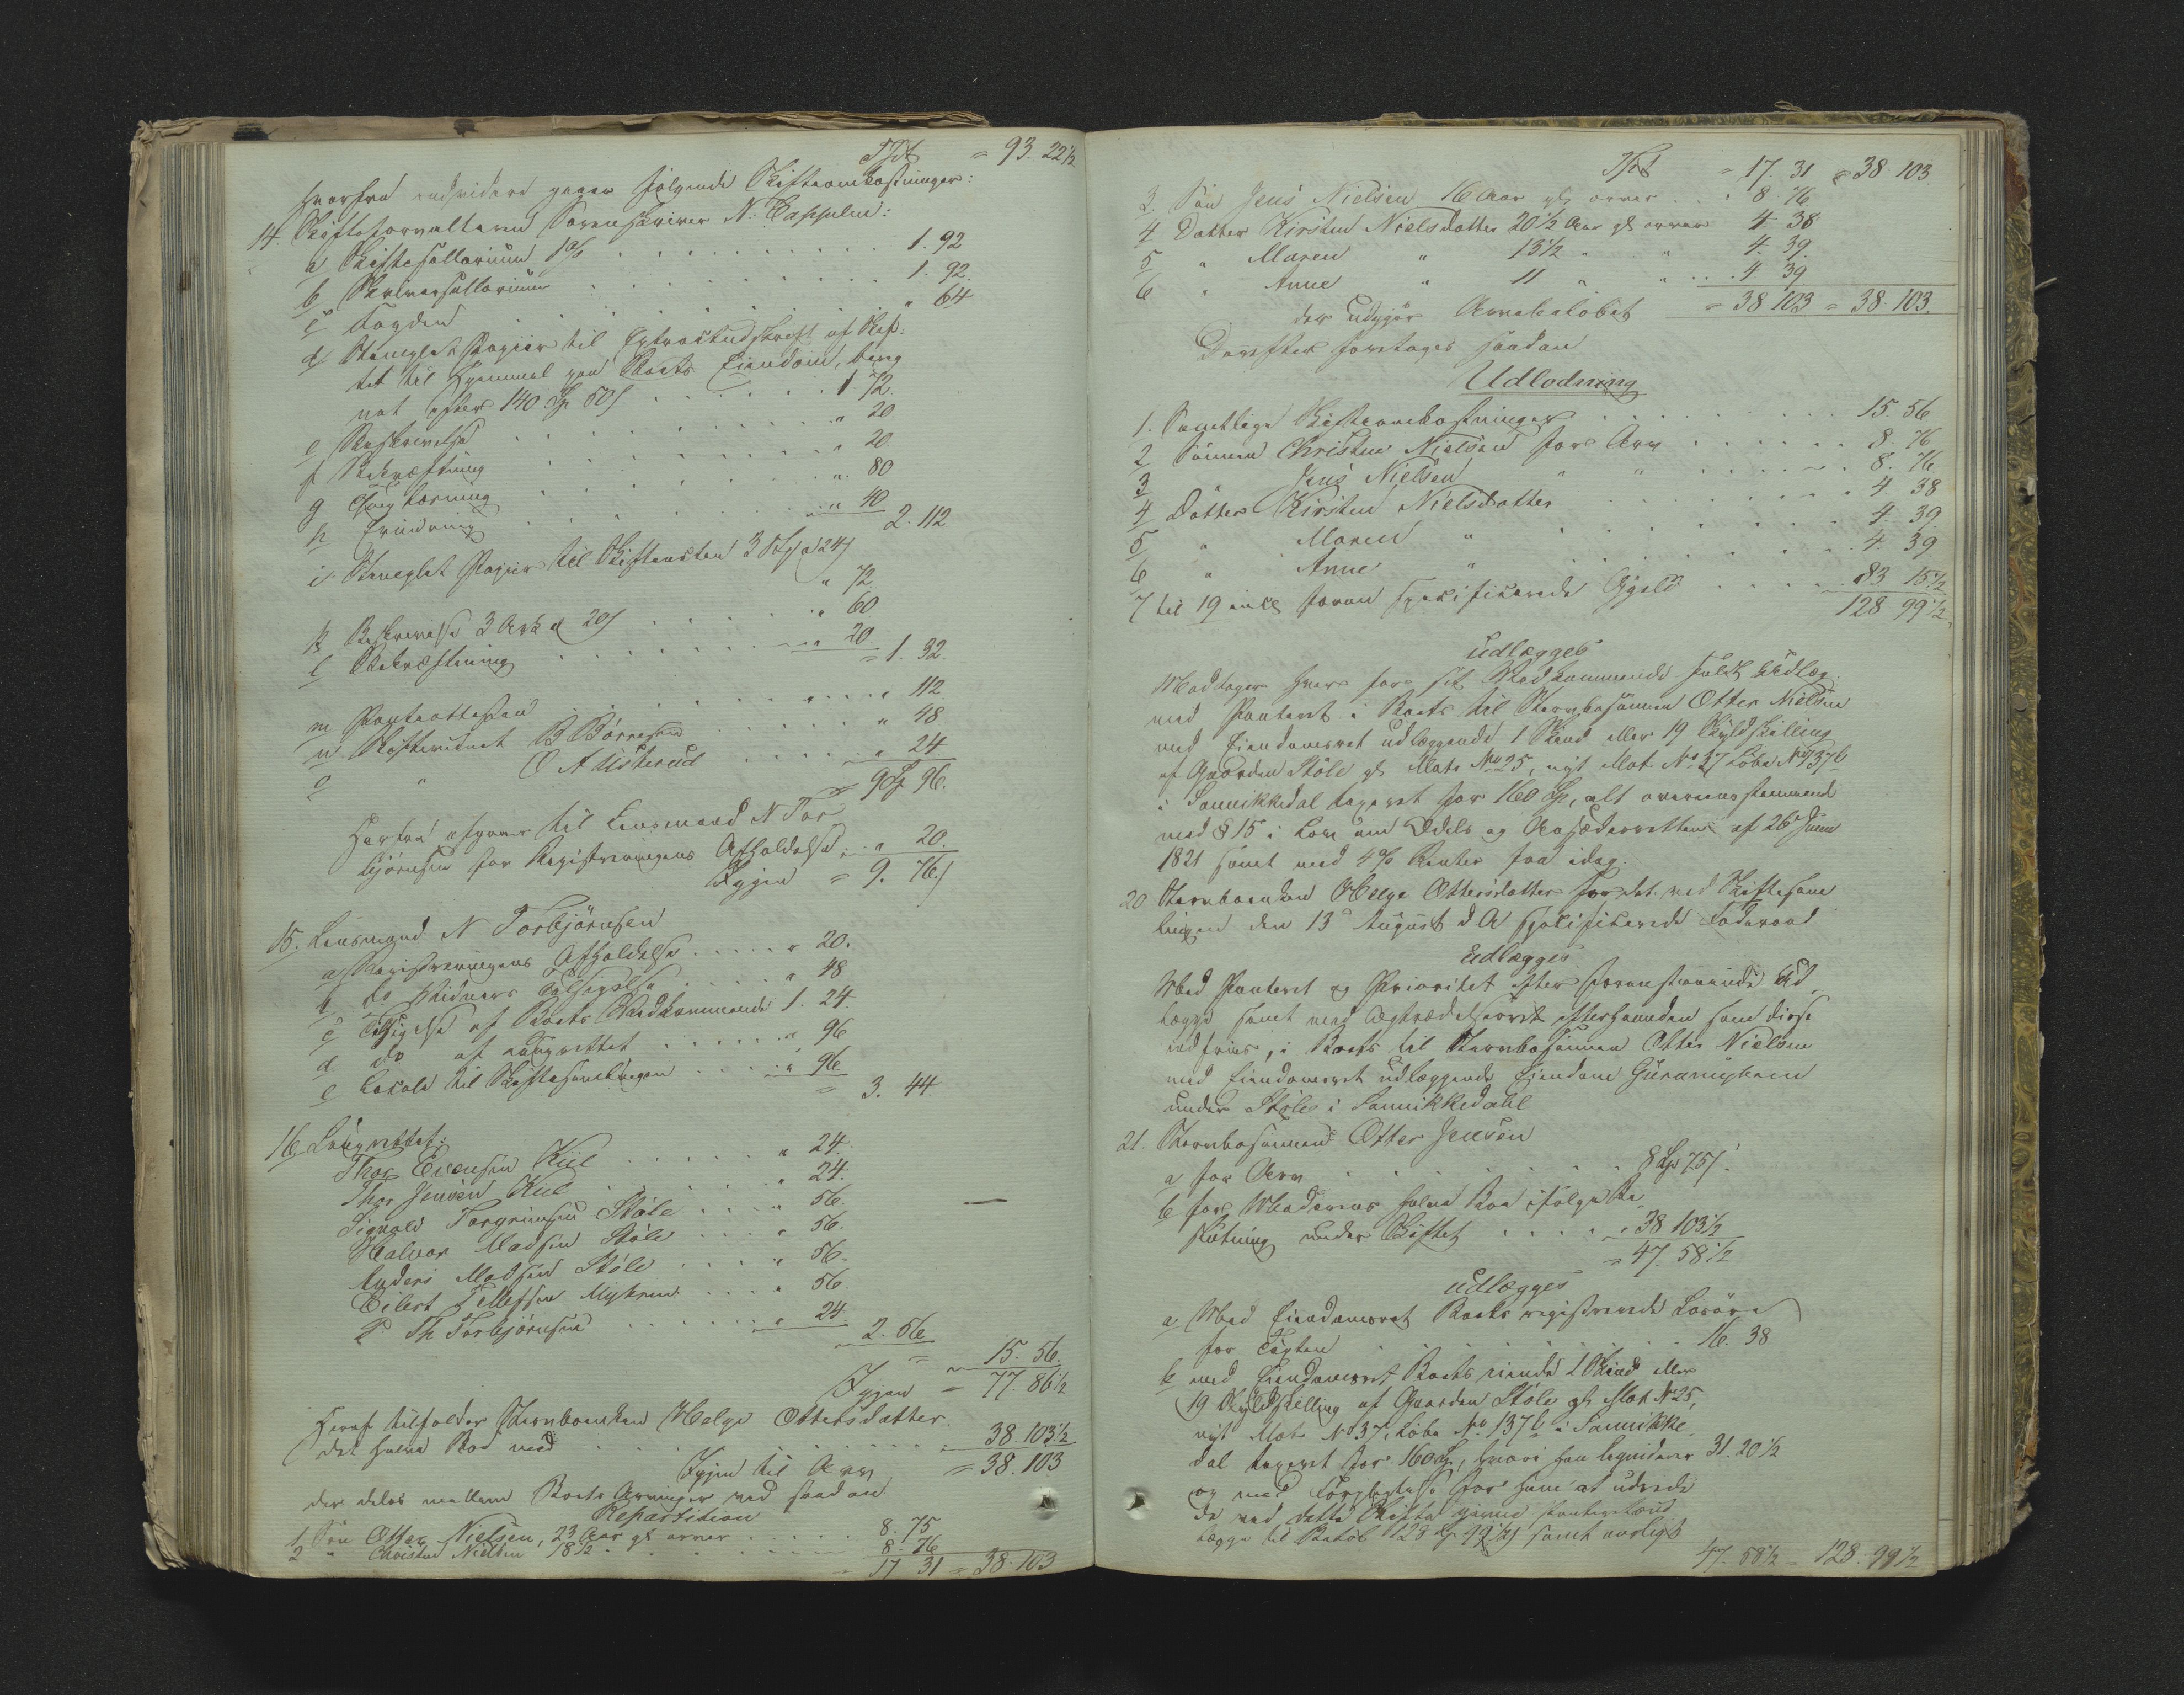 Tpt = 93. 22½
hvorfra endvidere gaaer følgende Skifteomkostninger:
14. Skifteforvalteren Sorenskriver N. Cappelen:
a Skiftesallarium 1% . . . 1. 92
b Skriversallarium . . . 1. 92.
c Fogden . . . " 64
d Stemplet Papir til Extractudskrift af Skif-
tet til Hjemmel paa Boets Eiendom, bereg
net efter 140 Sp 50 s . . . 1. 72.
e Beskrivelse . . . " 20
f Bekræftning . . . " 20
g Thinglæsning . . . " 80
h Erindring . . . " 40
2. 112
i. Stemplet Papiir til Skifteacten 3 Stk a 24 s
" 72
k Beskrivelse 3 Ark a 20 s . . . " 60
l Bekræftning . . . " 20
= 1. 32.
m Panteattesten . . . " 112
n Skiftevidnet B Børresen . . . " 48
o " O A Usterud . . . " 24
= 9 Sp 96.
Herfra afgaaer til Lensmand N Tor
bjørnsen for Registreringens Afholdelse . . " 20.
Igjen = 9. 76.
15. Lensmand N Torbjørnsen
a Registreringens Afholdelse . . . " 20.
b do Vidners Tilsigelse . . . " 48
c Tilsigelse af Boets Vedkommende 1. 24
d do af Laugrettet . . . " 96
e Locale til Skiftesamlingen . . . " 96
= 3. 44.
16 Laugrettet:
Thor Evensen Kiil . . . " 24.
Thor Jensen Kiil . . . " 24.
Sigvald Torgrimsen Støle . . . " 56.
Halvor Madsen Støle . . . " 56.
Anders Madsen Støle . . . " 56.
Eilert Tellefsen Myhren . . . " 56
P. Th Torbjørnsen . . . " 24
2. 56
= 15. 56.
Igjen = 77. 86½
Heraf tilfalder Sterboenken Helge Ottersdatter
det halve Boe med . . . 38. 103½
Igjen til Arv = 38. 103
der deles mellem Boets Arvinger ved saadan
Repartition
1 Søn Otter Nielsen, 23 Aar gl arver . . . 8. 75
2 " Christen Nielsen 18½ . . . 8. 76
= 17 31 = 38. 103
Tpt = 17. 31 = 38. 103
3. Søn Jens Nielsen 16 Aar gl arver . . . 8. 76
4 Datter Kirsten Nielsdatter 20½ Aar gl arver 4. 38
5 " Maren " 13½ " " 4. 39.
6 " Anne " 11 " " . . . 4 39
der udgjør Arvebeløbet = 38 103 = 38. 103.
Derefter foretages saadan
Udlodning
1. Samtlige Skifteomkostninger . . . 15. 56
2 Sønnen Christen Nielsen for Arv . . . 8. 76
3 " Jens Nielsen " " . . . 8. 76
4 Datter Kirsten Nielsdatter . . . 4 38
5 " Maren " . . . 4. 39
6 " Anne " . . . 4. 39
7 til 19 incl foran specificerede Gjeld . . . 83 15½
128 99½
udlægges
Modtager hver for sit Vedkommende fuldt Udlæg
med Panteret i Boets til Sterbosønnen Otter Nielsen
med Eiendomsret udlæggende 1 Skind eller 19 Skyldskilling
af Gaarden Støle gl Mat. No 25, nyt Mat. No 37 Løbe No 137b
i Sannikkedal taxeret for 160 Sp, alt overeensstemmende
med § 15 i Lov om Odels og Aasædesretten af 26 Juni
1821 samt med 4% Renter fra idag.
20 Sterboenken Helge Ottersdatter for det ved Skiftesam
lingen den 13de August d A specificerede Føderaad
udlægges
Med Panteret og Prioritet efter foranstaaende Ud
læg samt med Optrædelsesret efterhaanden som disse
indfries, i Boets til Sterbosønnen Otter Nielsen
med Eiendomsret udlæggende Eiendom Guramyhren
under Støle i Sannikkedahl
21. Sterbosønnen Otter Jensen
a for Arv . . . 8 Sp 75 s.
b for Moderens halve Boe ifølge Be
slutning under Skiftet . . . 38 103½
= 47. 58½
udlægges
a Med Eiendomsret Boets registrerede Løsøre
for Taxten . . . 16. 38
b med Eiendomsret Boets eiende 1 Skind eller
19 Skyldskilling af Gaarden Støle gl Mat No 25,
nyt Mat. No 37, Løbe No 137b i Sannikke
dal taxeret for 160 Sp, hvori han liqviderer 31. 20½
og med Forpligtelse for ham at udrede
de ved dette Skifte givne
lægge til Beløb 128 Sp 99½ s samt aarligt
47. 58½ = 128. 99½